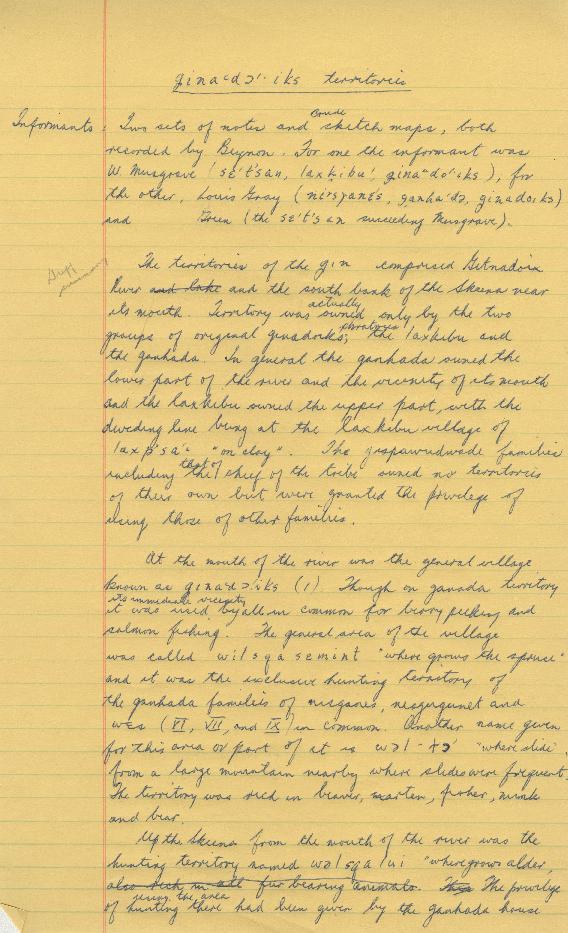 gina·dɔ'·iks territories
Informants: Two sets of notes and crude sketch maps, both
recorded by Beynon. For one the informant was
W. Musgrave (se't's an, laxkibu', gina·do'iks), for
the other, Louis Gray (nisyanes, ganha'dɔ, ginadoiks)
and Green (the se't's an succeeding Musgrave).
Duff
summary
The territories of the gin comprised Gitnadoix
River and lake and the south bank of the Skeena near
its mouth. Territory was actually owned only by the two
groups of original ginadoiks; the laxkibu and
the ganhada. In general the ganhada owned the
lower part of the river and the vicinity of its mouth
and the laxkibu owned the upper part, with the
dividing line being at the laxkibu village of
"on clay". The gispawudwade families
including that of the chief of the tribe owned no territories
of their own but were granted the privilege of
using those of other families.
At the mouth of the river was the general village
known as gina·dɔ'iks (1). Though on ganada territory
its immediate vicinity
it was used by all in common for berry picking and
salmon fishing. The general area of the village
was called wilsgasemint "where grows the spruce"
and it was the exclusive hunting territory of
the ganhada families of nisganes, nesgegunet and
wes (VI, VII, and IX) in common. Another name given
for this area or part of it is "where slide"
from a large mountain nearby where slides were frequent.
The territory was rich in beaver, marten, fisher, mink
and bear.
Up the Skeena from the mouth of the river was the
hunting territory named wəlsgalui "where grows alder,
also rich in all fur bearing animals. This The privilege
of using the area hunting there had been given by the ganhada house